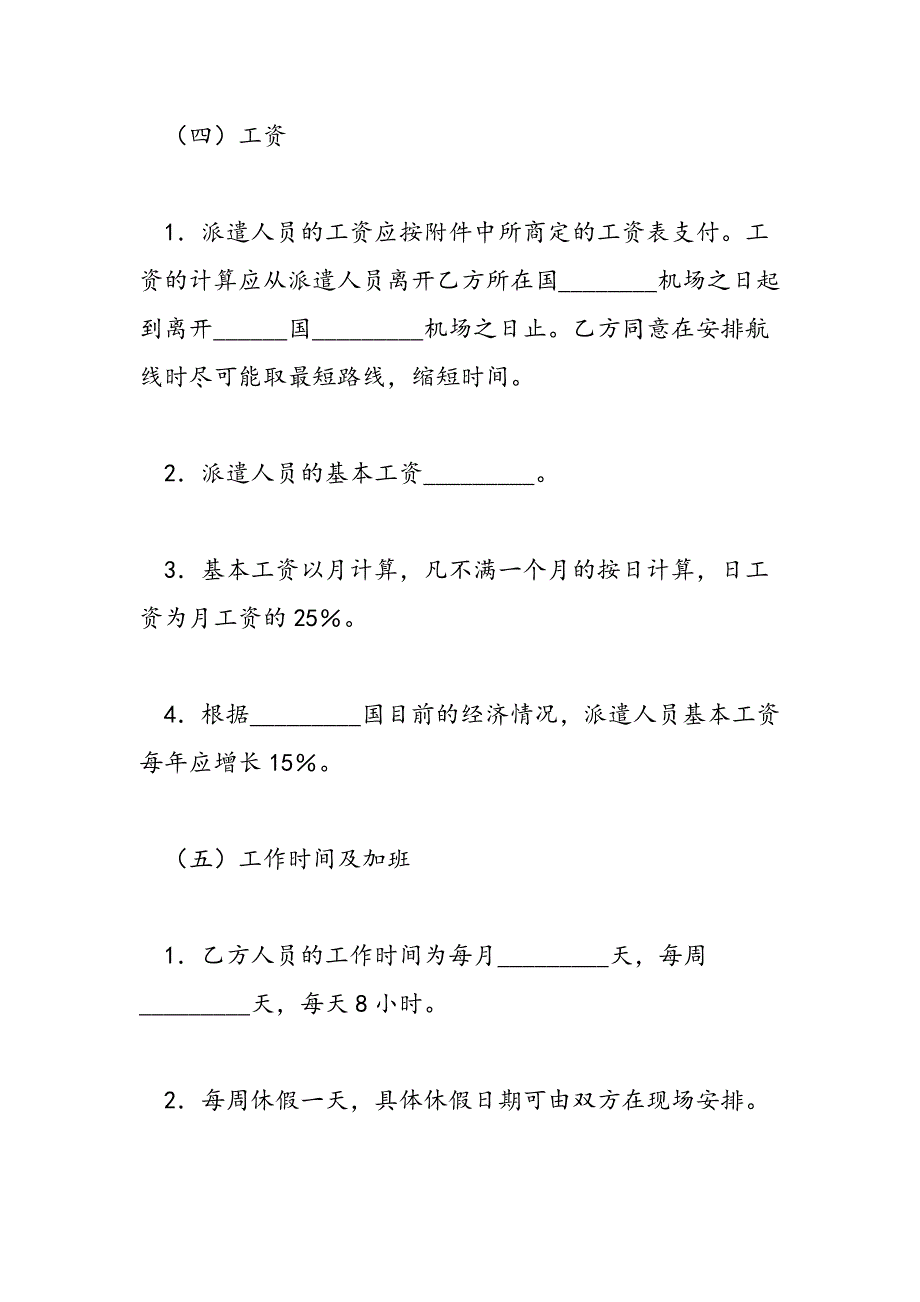 （四）工资
1．派遣人员的工资应按附件中所商定的工资表支付。工
资的计算应从派遣人员离开乙方所在国________机场之日起
到离开______国_________机场之日止。乙方同意在安排航
线时尽可能取最短路线，缩短时间。
2．派遣人员的基本工资_________。
3．基本工资以月计算，凡不满一个月的按日计算，日工
资为月工资的25％。
4．根据_________国目前的经济情况，派遣人员基本工资
每年应增长15％。
（五）工作时间及加班
1．乙方人员的工作时间为每月_________天，每周
_________天，每天8小时。
2．每周休假一天，具体休假日期可由双方在现场安排。